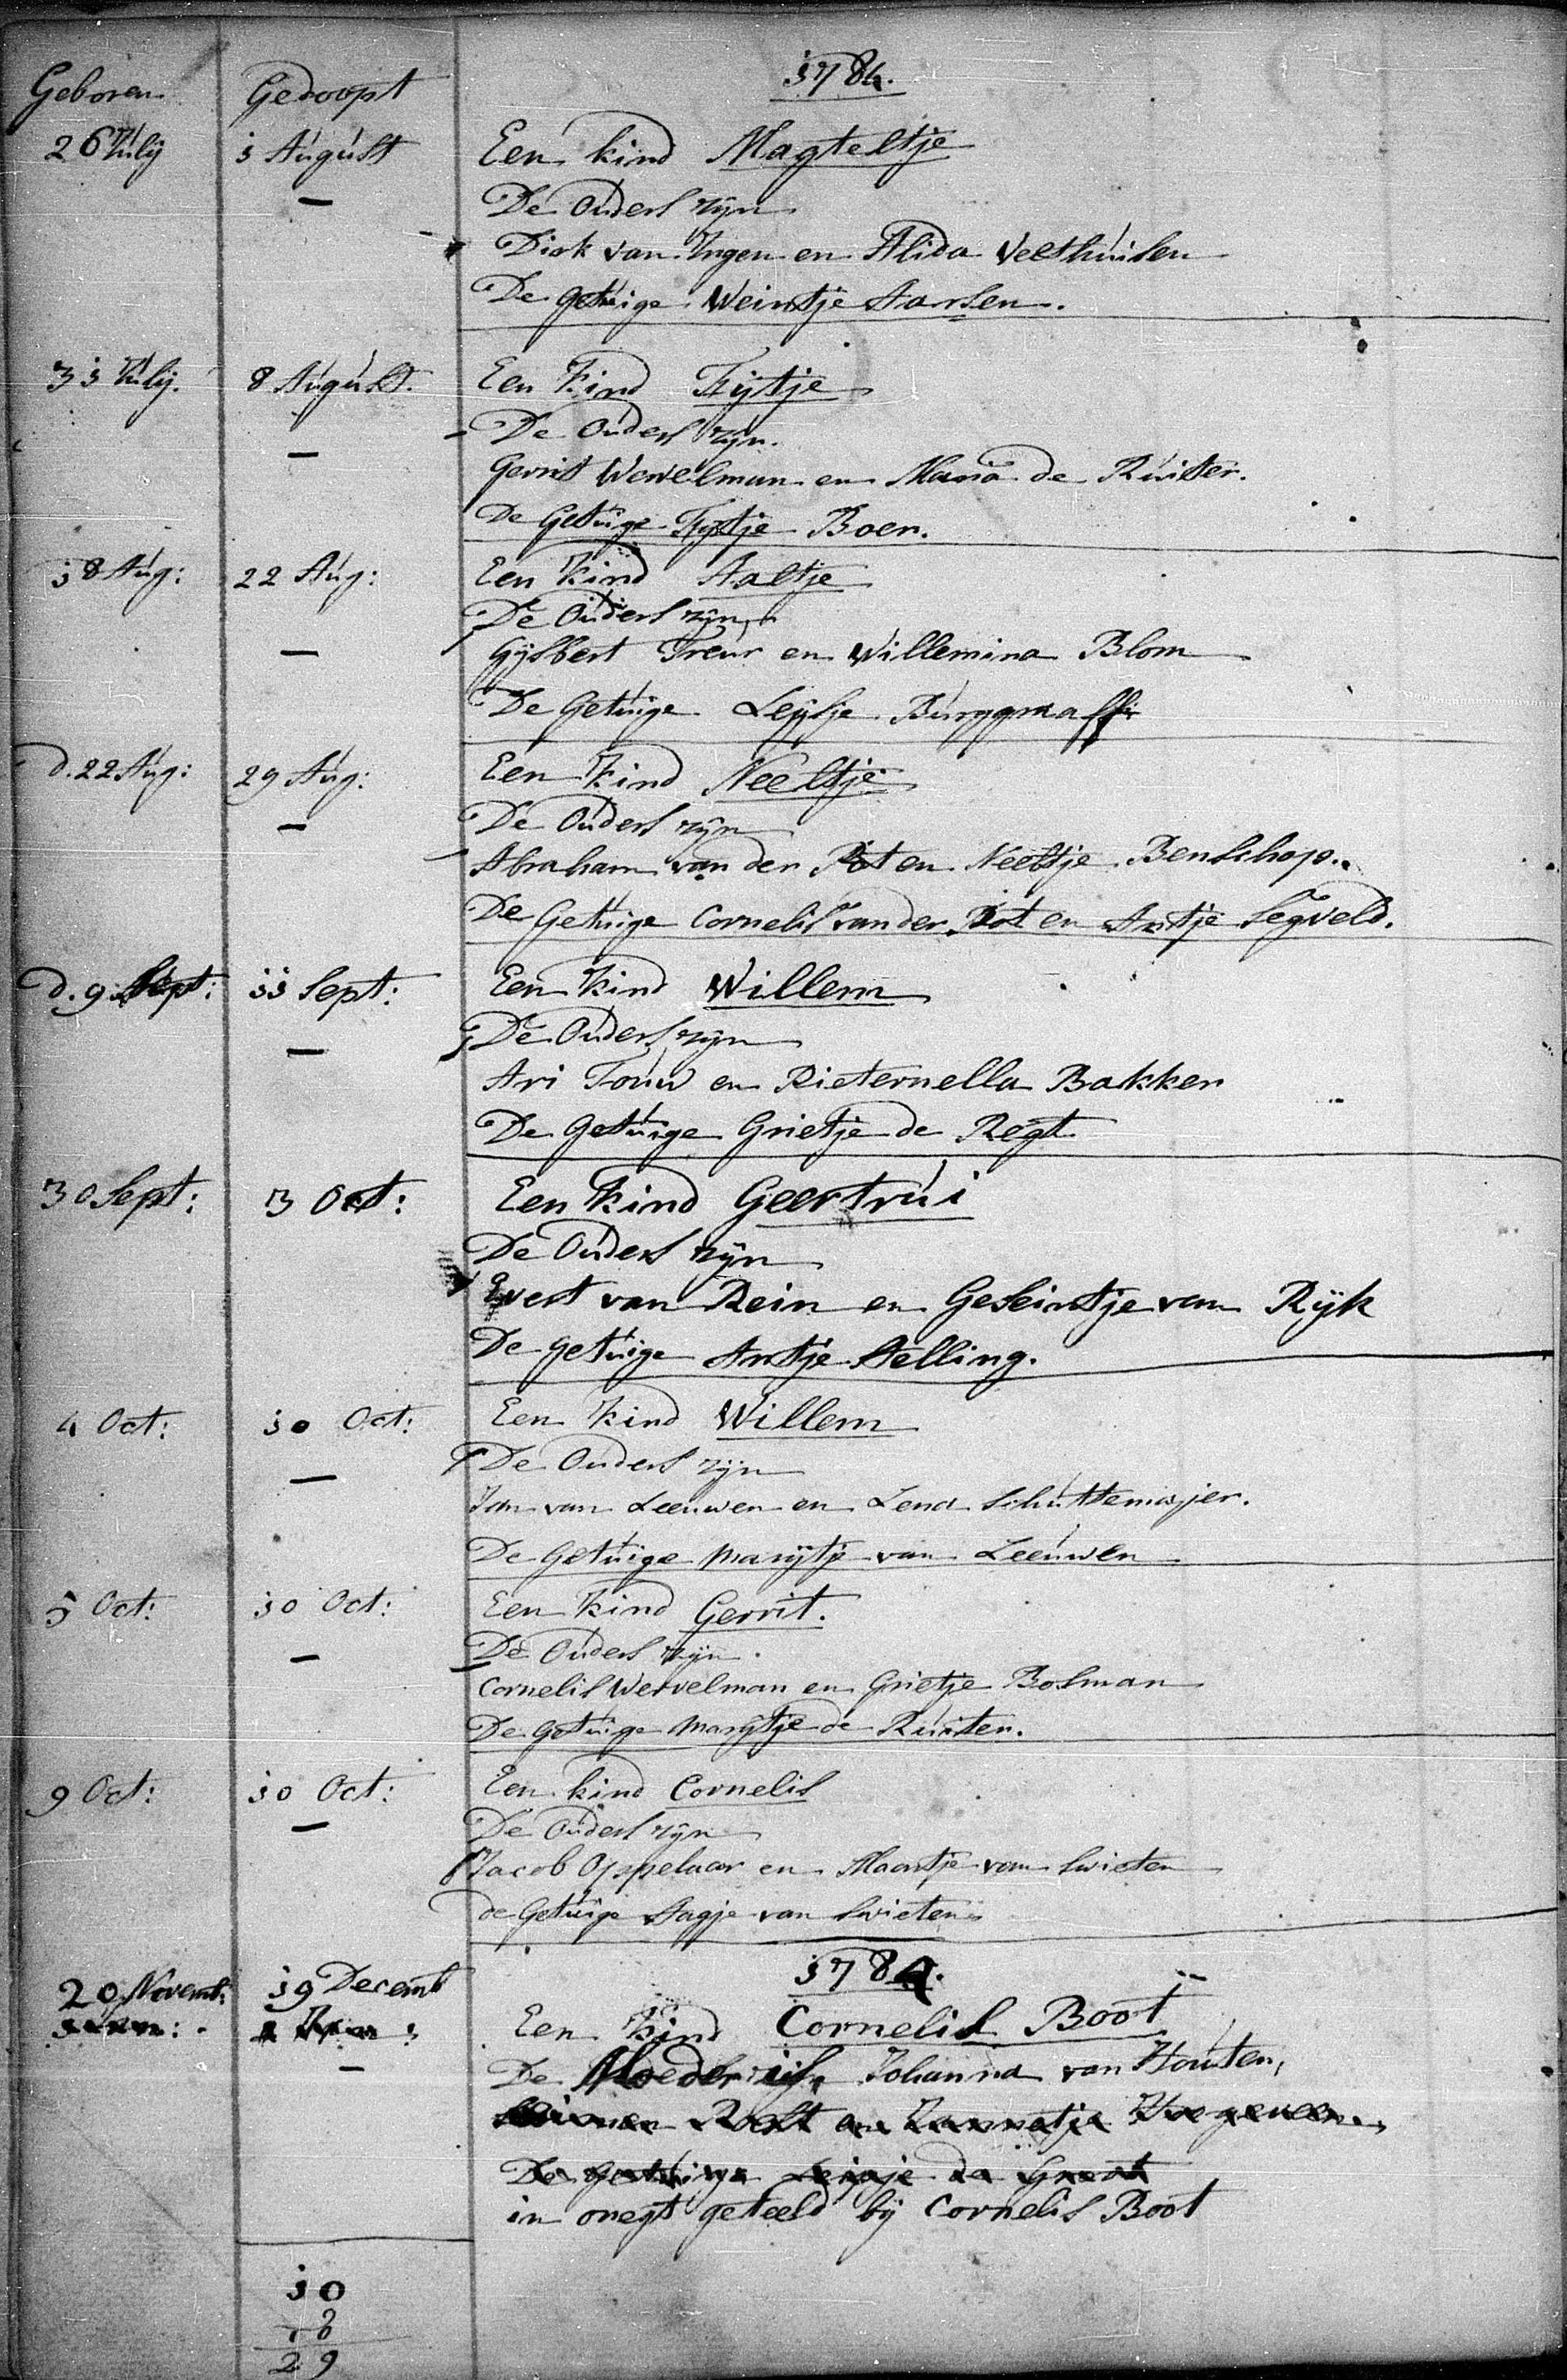 1784.
Geboren Gedoopt
26 July 1 August Een kind Magteltje
De Ouders zyn
Dirk van Ingen en Alida Veethuisen
De getuige Weintje Aarsen.
31 July. 8 August. Een Kind Fijtje
De Ouders zyn.
Gerrit Wervelman en Maria de Ruiter.
De Getuige Fijtje Boer.
18 Aug: 22 Aug: Een Kind Aaltje
De Ouders zyn
Gysbert Treur en Willemina Blom
De Getuige Leysje Burggraaff
d. 22 Aug: 29 Aug: Een Kind Neeltje
De Ouders zyn
Abraham van der Pot en Neeltje Benschop.
De Getuige Cornelis van der Pot en Antje Segveld.
d. 9 Sept: 11 Sept: Een Kind Willem
De Ouders zyn
Ari Touw en Pieternella Bakker
De Getuige Grietje de Regt
30 Sept: 3 Oct: Een Kind Geertrui
De Ouders zyn
Evert van Rein en Geseintje van Ryk
De getuige Antje Stelling.
4 Oct: 10 Oct: Een Kind Willem
De Ouders zyn
Jan van Leeuwen en Lena Schuttemajer.
De Getuige Marijtje van Leeuwen
5 Oct: 10 Oct: Een Kind Gerrit.
De Ouders zyn.
Cornelis Wervelman en Grietje Bosman
De getuige Marijtje de Ruiter.
9 Oct: 10 Oct: Een kind Cornelis
De Ouders zyn
Jacob Oppelaar en Maartje van Swieten
de Getuige Aagje van Swieten
1784.
20 Novemb: 19 Decemb Een Kind Cornelis Boot
De Moeder is, Johanna van Houten,
in onegt geteeld by Cornelis Boot
10
29